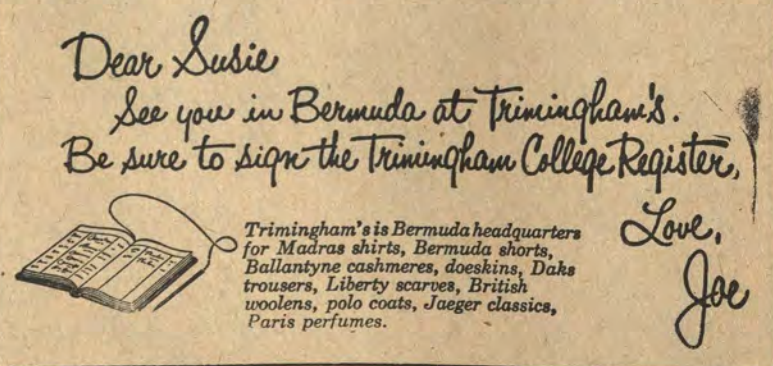 Dear Susie
See you in Bermuda at Trimingham's.
Be sure to sign the Trimingham College Register,
Love,
Joe
Trimingham's is Bermuda headquarters
for Madras shirts, Bermuda shorts,
Ballantyne cashmeres, doeskins, Daks
trousers, Liberty scarves, British
woolens, polo coats, Jaeger classics,
Paris perfumes.